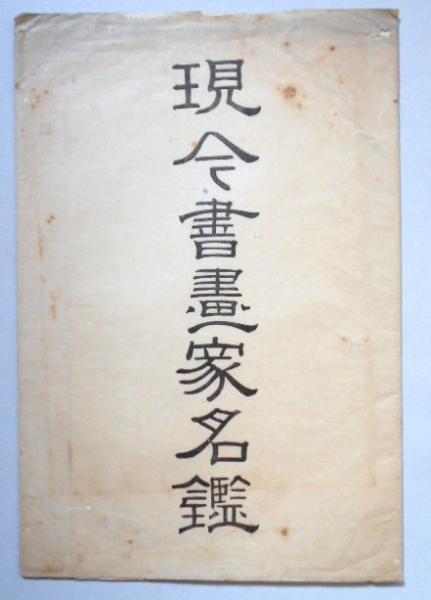 現今書畫家名鑑